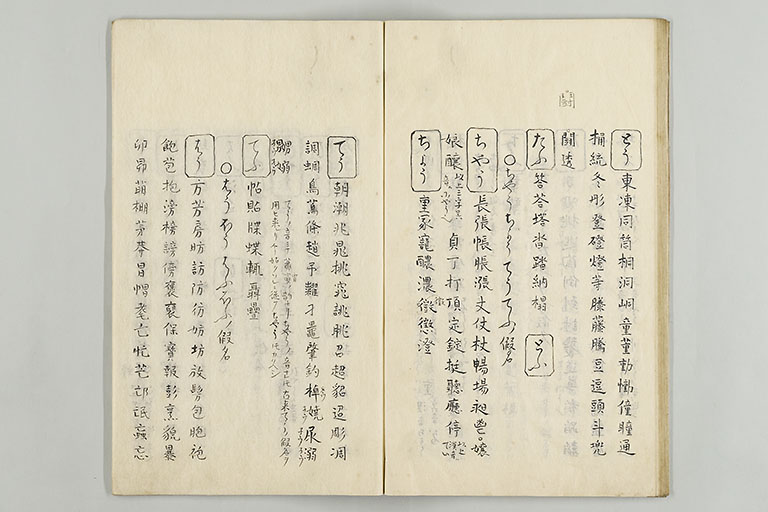 とう 東凍同筒桐洞峒童董動慟僮瞳通
桶統冬彤登磴燈等滕藤騰豆逗頭斗兜
鬪透
たふ 答荅塔沓踏納榻 とふ
〇ちやうちようてうてふノ假名
ちやう 長張帳脹漲丈仗杖暢場昶鬯嬢
娘釀 貞丁打頂定錠挺聽廳停
ちよう 重冢寵醲濃徴懲澄
てう 朝潮兆晁挑窕誂眺召超貂迢彫凋
調蜩鳥蔦條趙予糶才鼂肇釣棹嬈尿溺
てふ 帖貼牒蝶輒聶疊
〇はうほうはふほふノ假名
はう 方芳房昉訪防彷妨坊放髣包胞袍
鮑苞抱滂榜謗傍褒裒保寳報彭烹貌暴
卯昴萌棚茅莽冒帽耄亡忙芒邙氓蝱忘